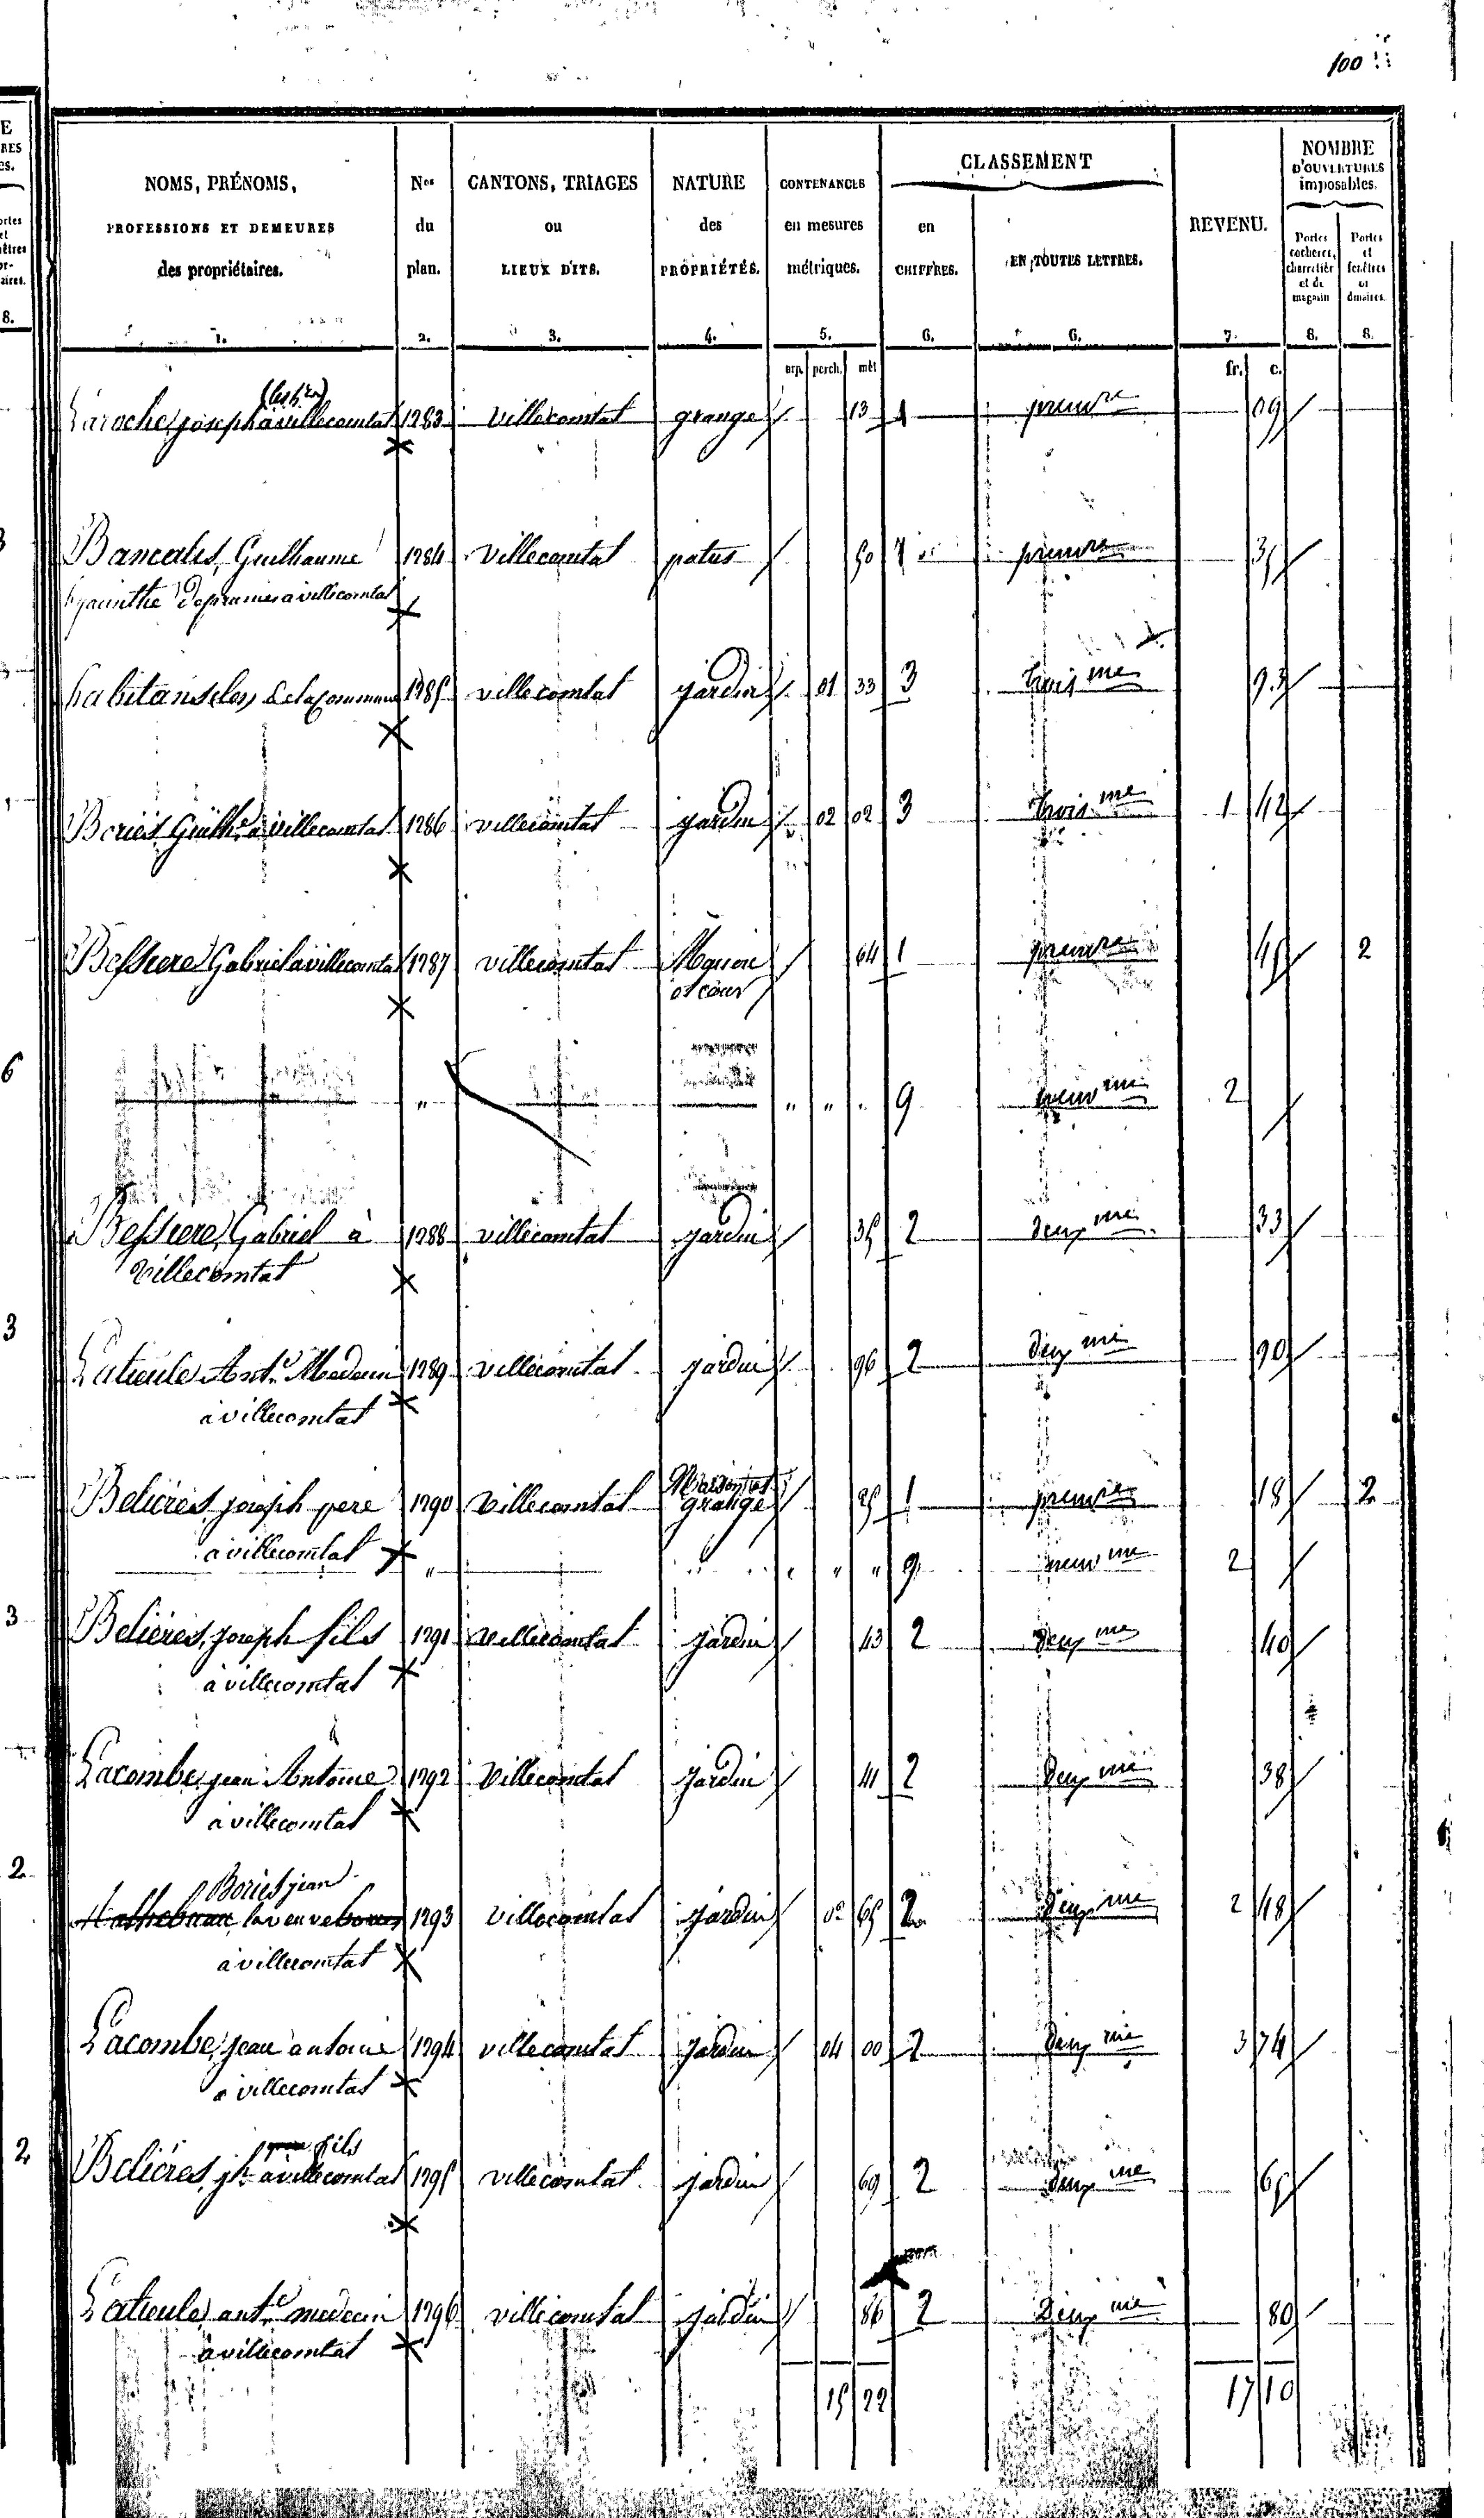 100
E
RES
es.
8.
6
3
3
2
2
NOMS, PRÉNOMS,
PROFESSIONS ET DEMEURES
des propriétaires.
1.
Nos
du
plan.
2.
CANTONS, TRIAGES
ou
LIEUX DITS.
3.
NATURE
des
PROPRIÉTÉS.
4.
CONTENANCES
en mesures
métriques.
5.
CLASSEMENT
en
CHIFFRES.
6.
EN TOUTES LETTRES.
6.
REVENU.
7.
NOMBRE
D'OUVERTURES
imposables.
Portes
cocheres,
charretièr
et de
magasin
8.
Portes
et
fenêtres
or
dinaires.
8.
arp. perch. mèt fr. c.
Laroche joseph à villecomtat 1283 villecomtat grange 13 1 premre 09
Bancalis, Guilhaume 1284 villecomtat patus 50 1 premre 35
hyacinthe de pruines a villecomtat
habitans (les) de la Commune 1285 villecomtat jardin 01 33 3 trois me 93
Bories Guilhe a villecomtat 1286 villecomtat jardin 02 02 3 trois me 1 42
Bessiere Gabriel a villecomtat 1287 villecomtat Maison 64 1 premre 45 2
et cour
" " " " 9 neuv me 2
Bessiere, Gabriel à 1288 villecomtat jardin 35 2 deux me 33
villecomtat
Latieule Ant.e Medecin 1289 villecomtat jardin 96 2 deux me 90
à villecomtat
Belières, joseph pere 1290 villecomtat Maison et 25 1 premre 18 2
grange
a villecomtat " " " " 9 neuv me 2
Belières, joseph fils 1291 villecomtat jardin 43 2 deux me 40
à villecomtat
Lacombe, jean Antoine 1292 villecomtat jardin 41 2 deux me 38
à villecomtat
Bories jean
la veuve 1293 villecomtat jardin 02 65 2 deux me 2 48
à villecomtat
Lacombe, jean antoine 1294 villecomtat jardin 04 00 2 deux me 3 74
a villecomtat
fils
Belières, jh à villecomtat 1295 villecomtat jardin 69 2 deux me 65
Latieule ant.e medecin 1296 villecomtat jardin 86 2 Deux me 80
à villecomtat
15 22 17 10